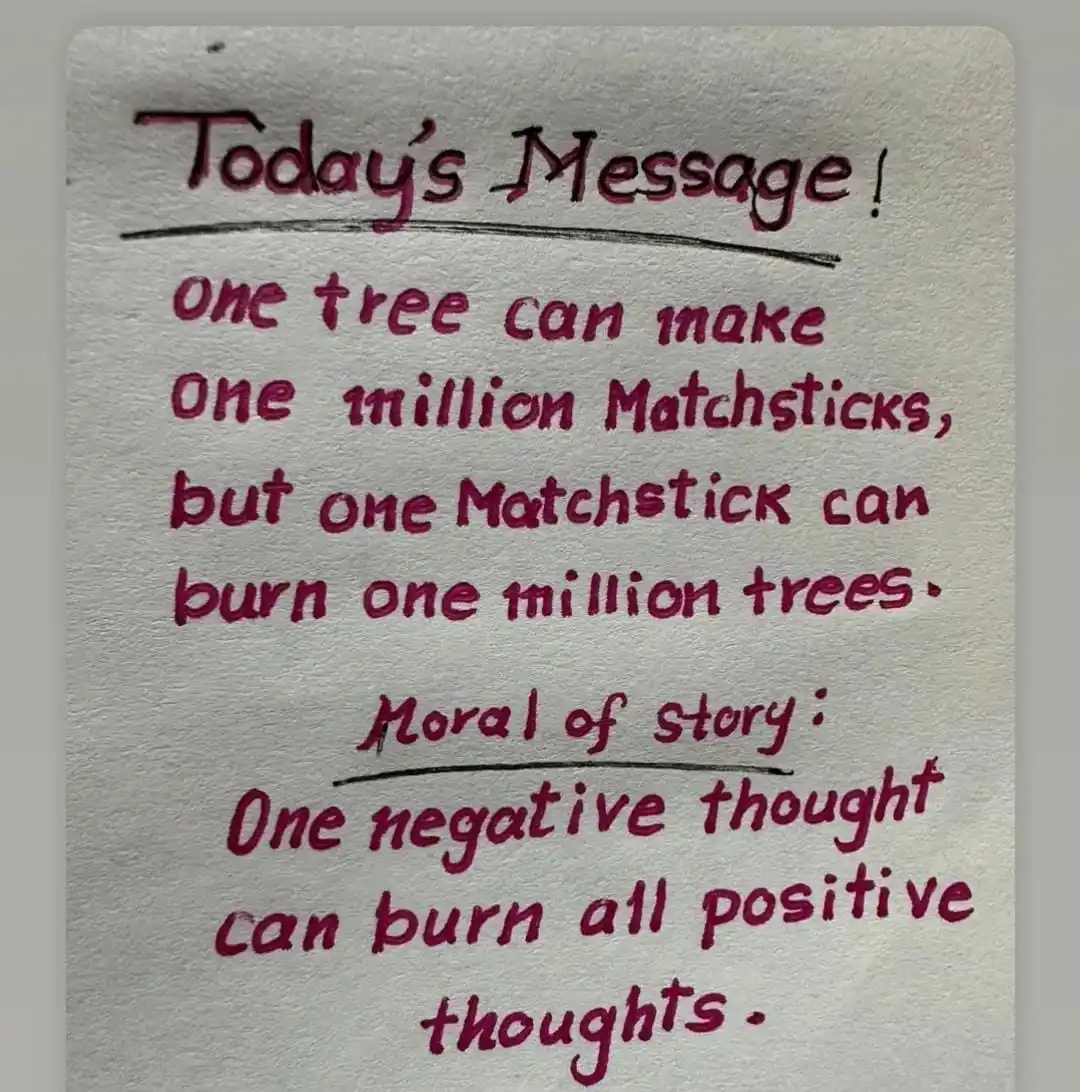 Today's Message!
one tree can make
one million Matchsticks,
but one Matchstick can
burn one million trees.
Moral of story:
One negative thought
can burn all positive
thoughts.